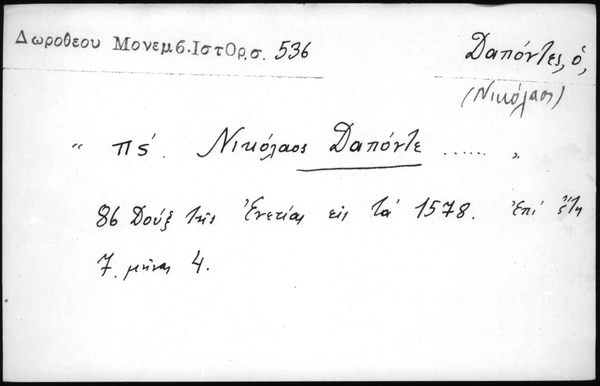 Δωροθεου Μονεμβ.Ιστορ.σ. 536
Δαπόντες, ὁ,
(Νικόλαος)
“ πς΄. Νικόλαος Δαπόντε ...... „
86 Δούξ τῆς Ἐνετίας εἰς τά 1578. Ἐπί ἔτη
7. μῆνας 4.